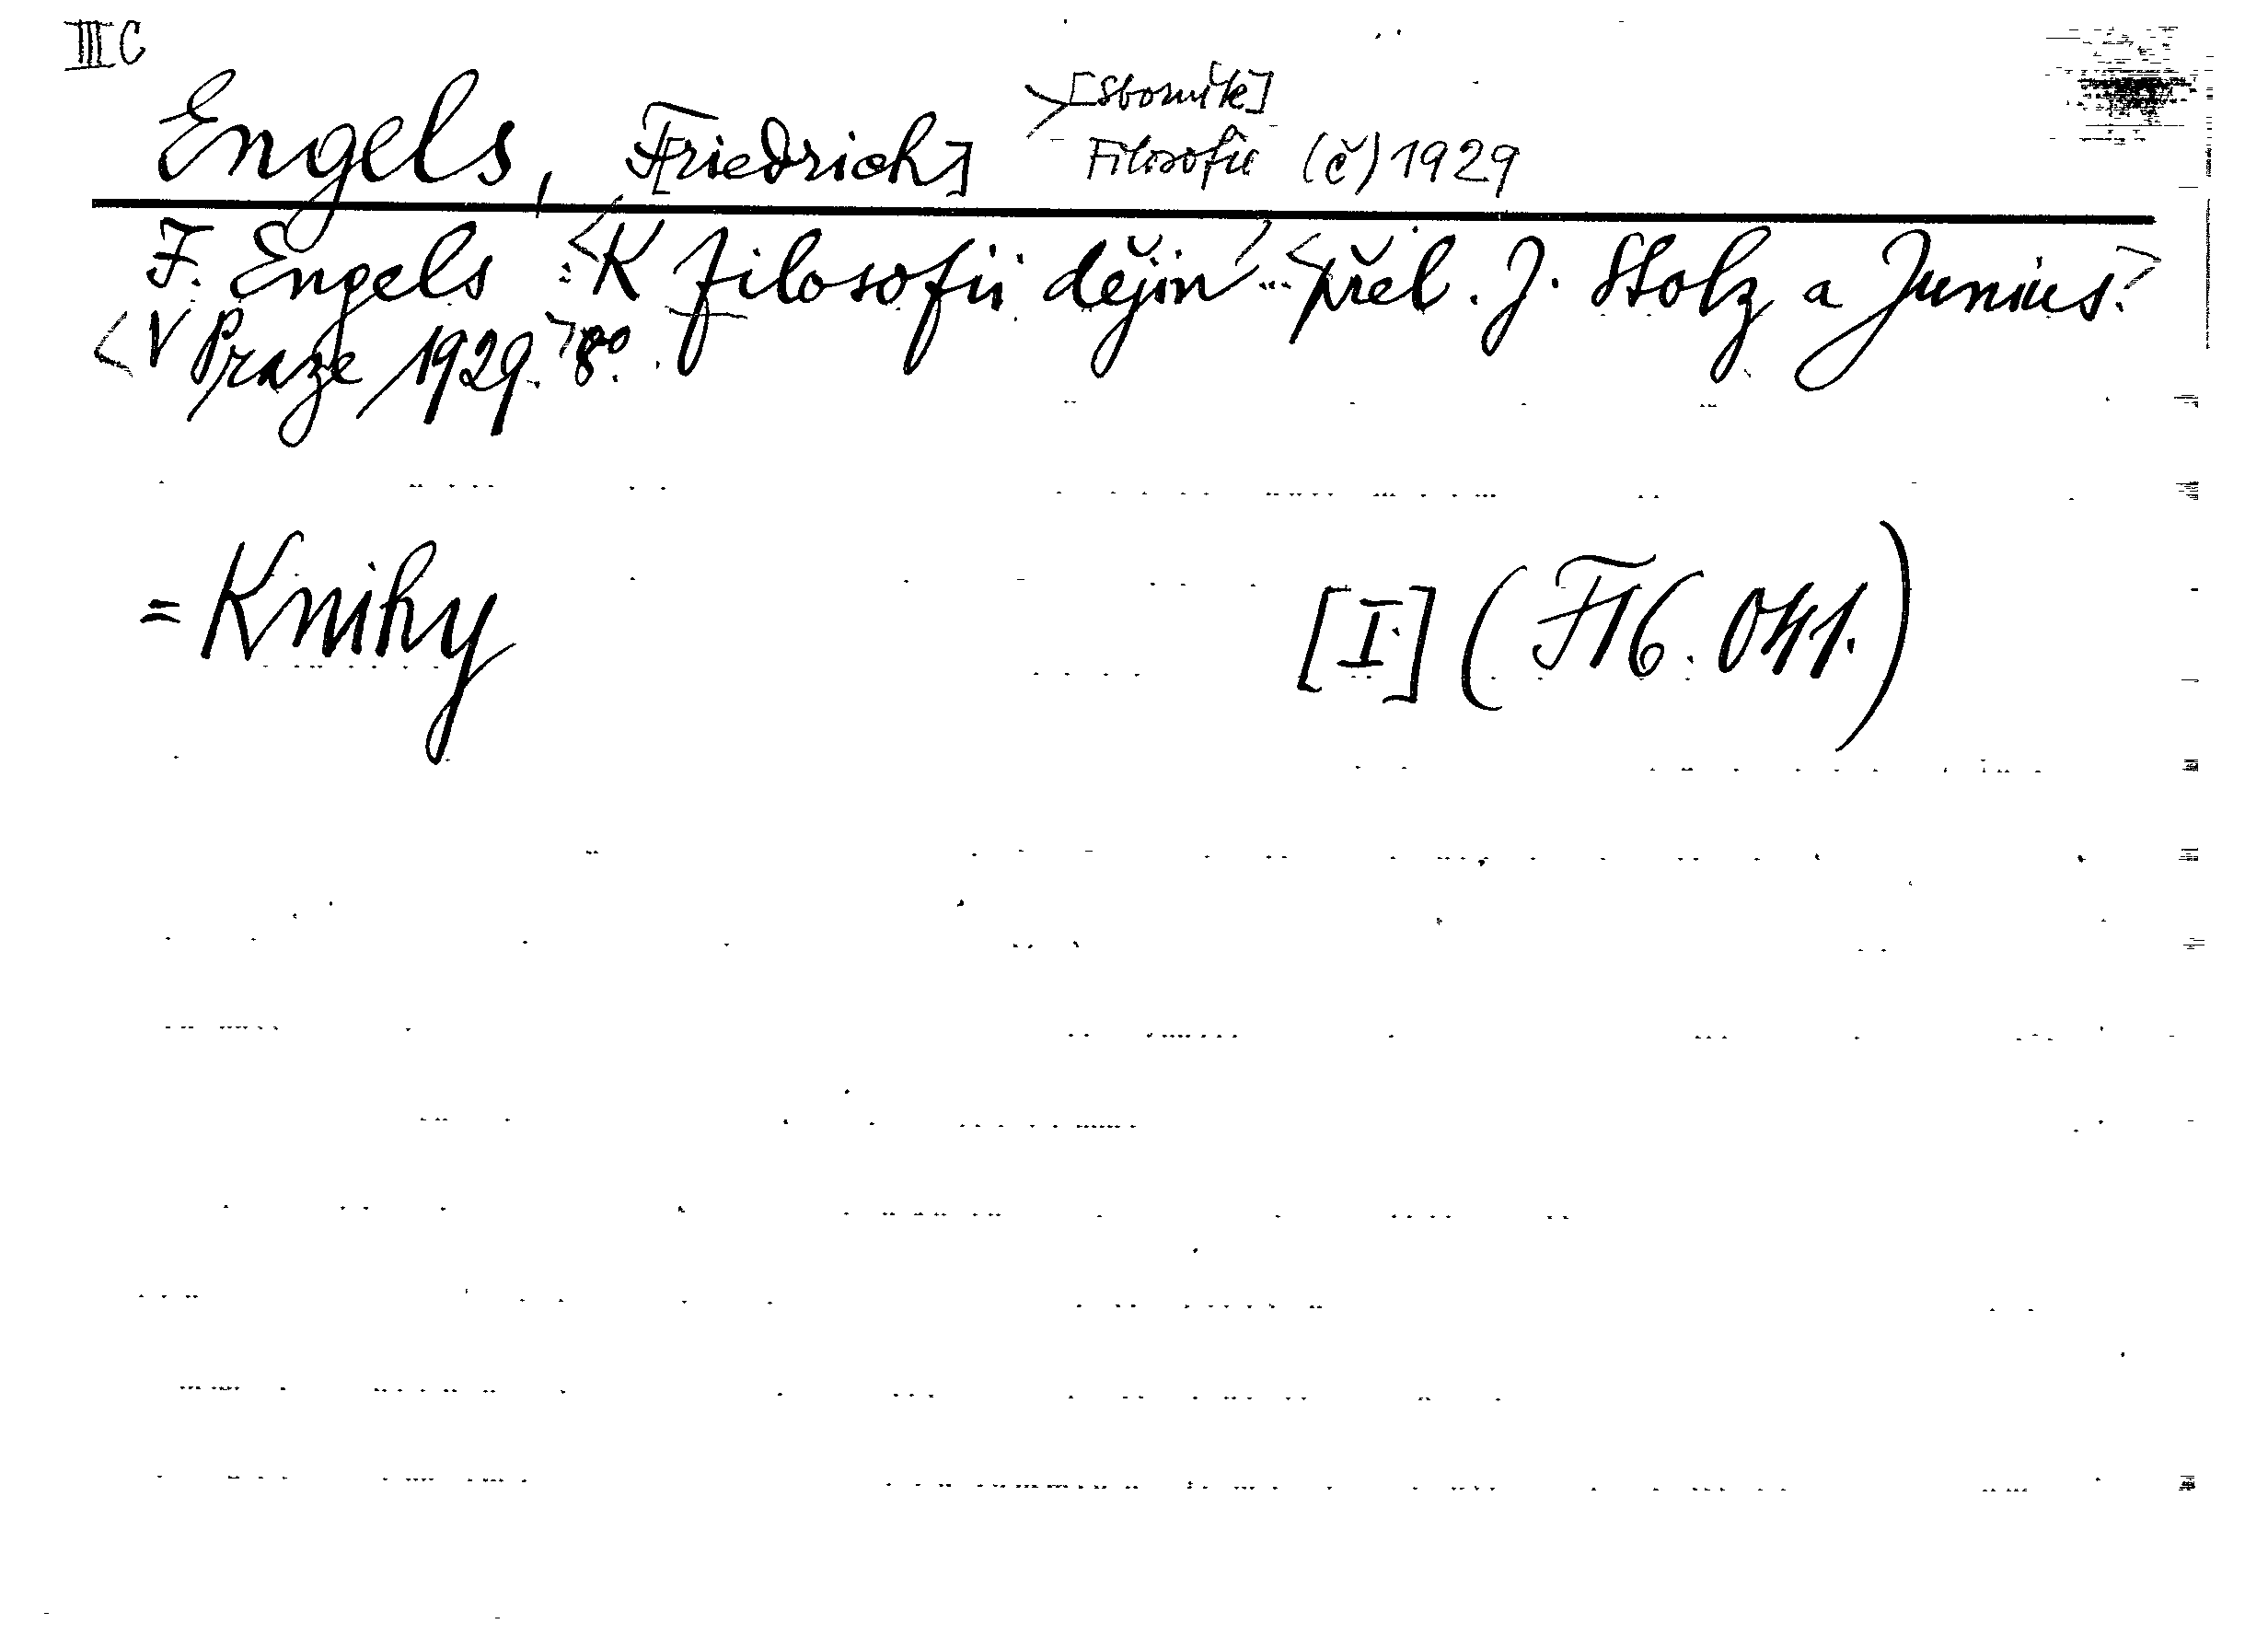 III C
[Sborník]
Engels, F[riedrich] > Filosofie (č) 1929
F. Engels : <K filosofii dějin> ... <přel. J. Stolz a Junius.>
<V Praze 1929.> 8°.
= Knihy [I] (F 16.041.)